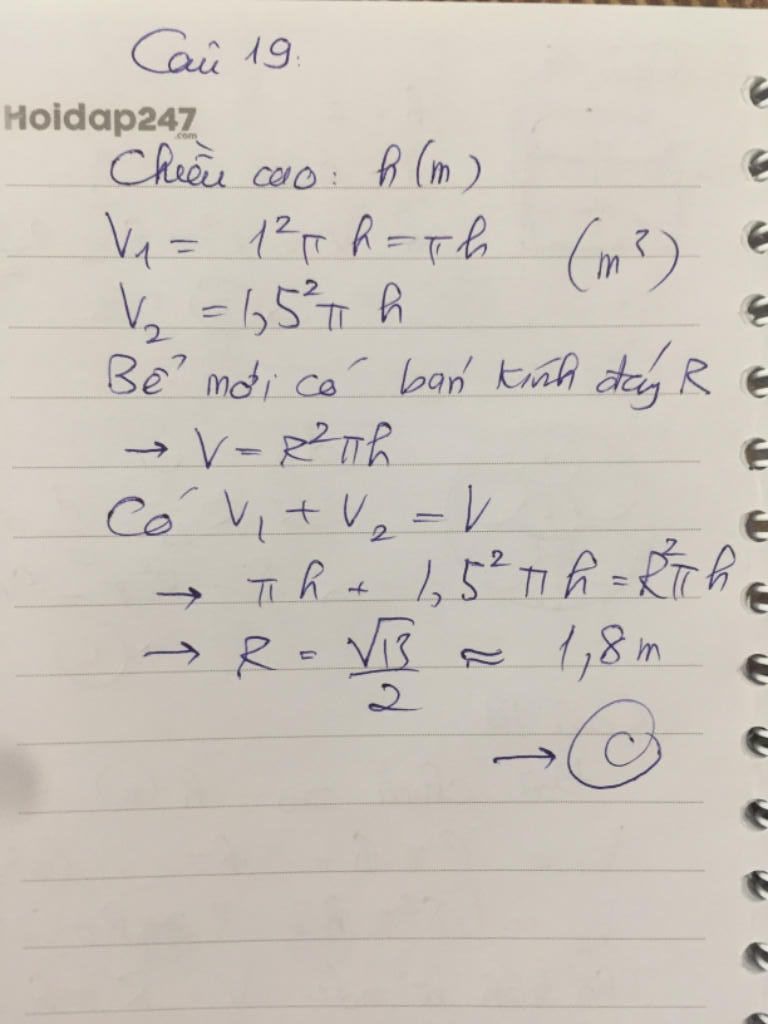 Câu 19:
Hoidap247
.com
Chiều cao: h (m)
V₁ = 1²π h = πh (m³)
V₂ = 1,5²π h
Bể mới có bán kính đáy R
→ V = R²πh
Có V₁ + V₂ = V
→ πh + 1,5²πh = R²πh
→ R = √13/2 ≈ 1,8m
→ C